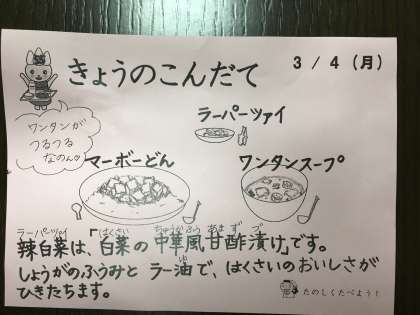 きょうのこんだて
3 / 4 (月)
ワンタンが
つるつる
なのん♪
ラーパーツァイ
マーボーどん
ワンタンスープ
ラーパーツァイ はくさい ちゅうかふう あま ず づ
辣白菜は、「白菜の中華風甘酢漬け」です。
ゆ
しょうがのふうみと ラー油で、はくさいのおいしさが
ひきたちます。
たのしくたべよう!